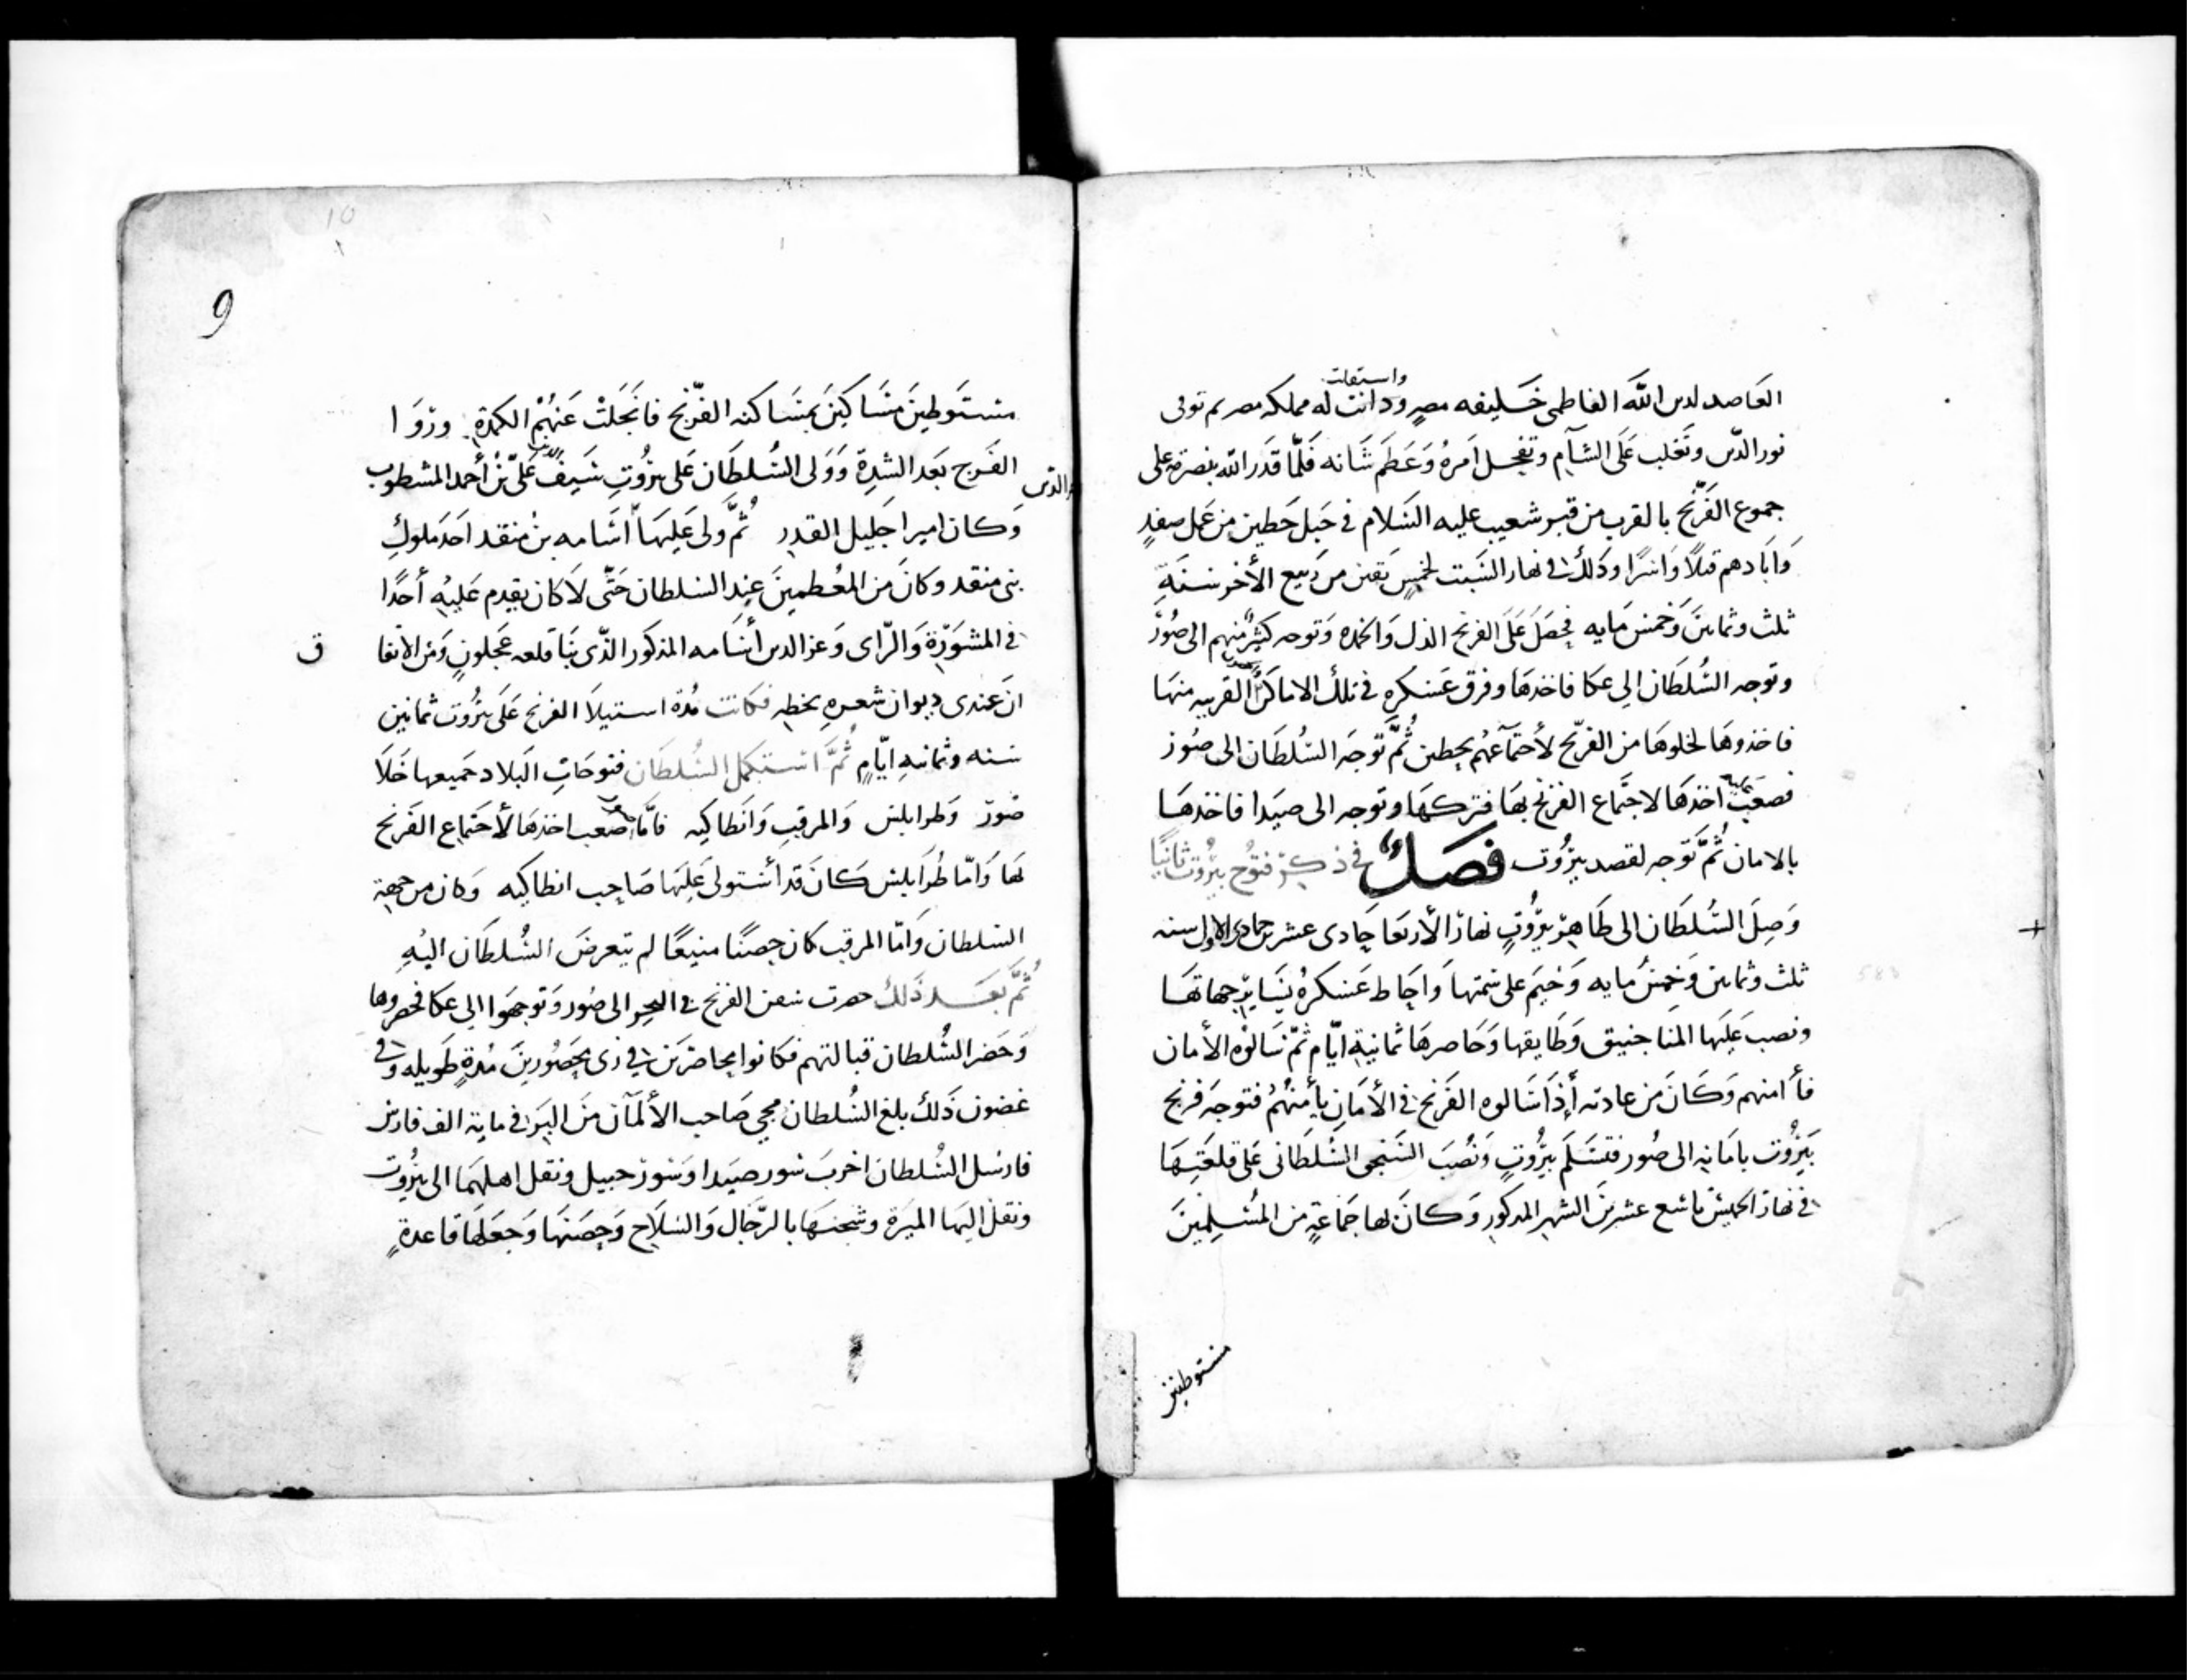 العاصد لدين الله الفاطمى خليفه مصر ودانت له مملكه مصر ثم توفى
واستقلت
نور الدين وتغلب على الشام وتفحل امره وعظم شانه فلما قدر الله بنصرته على
جموع الفرنج بالقرب من قبر شعيب عليه السلام فى جبل حطين من عمل صفد
وابادهم قتلا واسرا وذلك فى نهار السبت لخمس بقين من ربيع الأخر سنة
ثلث وثمانين وخمس مايه فحصل على الفرنج الذل والخمده وتوجه كثير منهم الى صور
وتوجه السلطان الى عكا فاخذها وفرق عسكره فى تلك الاماكن القريبه منها
فاخذوها لخلوها من الفرنج لأجتماعهم بحطين ثم توجه السلطان الى صور
فصعب اخذها لاجتماع الفرنج بها فتركها وتوجه الى صيدا فاخذها
بالامان ثم توجه لقصد بيروت فصل فى ذكر فتوح بيروت ثانيا
وصل السلطان الى ظاهر بيروت نهار الأربعا حادى عشرين جمادى الاول سنه
ثلث وثمانين وخمس مايه وخيم على سمتها واحاط عسكره بساير جهاتها
ونصب عليها المناجنيق وطايقها وحاصرها ثمانية ايام ثم سالوه الأمان
فأامنهم وكان من عادته أذا سالوه الفرنج فى الأمان يأمنهم فتوجه فرنج
بيروت بامانه الى صور فتسلم بيروت ونصب السنجق السلطانى على قلعتها
فى نهار الخميس تاسع عشرين الشهر المذكور وكان لها جماعة من المسلمين
مستوطنين
9
مستوطين مساكين بمساكنه الفرنج فانجلت عنهم الكمدة ورزوا
الفرج بعد الشدة وولى السلطان على بيروت سيف الدين على بن أحمد المشطوب
وكان اميرا جليل القدر ثم ولى عليها اسامه بن منقد احد ملوك
بنى منقد وكان من المعظمين عند السلطان حتى لا كان يقدم عليه أحدا
فى المشورة والراى وعز الدين أسامه المذكور الذى بنا قلعه عجلون ومن الاتفا
ق
ان عندى ديوان شعره بخطه فكانت مدة استيلا الفرنج على بيروت ثمانين
سنه وثمانيه ايام ثم استكمل السلطان فتوحات البلاد جميعها خلا
صور وطرابلس والمرقب وانطاكيه فاما صعب اخذها لأجتماع الفرنج
لها واما طرابلس كان قد أستولى عليها صاحب انطاكيه وكان من جهة
السلطان واما المرقب كان حصنا منيعا لم يتعرض السلطان اليه
ثم بعد ذلك حضرت سفن الفرنج فى البحر الى صور وتوجهوا الى عكا فحصروها
وحضر السلطان قبالتهم فكانوا محاضرين فى زى محصورين مدة طويله وفى
غضون ذلك بلغ السلطان مجى صاحب الألمان من البر فى ماية الف فارس
فارسل السلطان اخرب سور صيدا وسور جبيل ونقل اهلهما الى بيروت
ونقل اليها الميرة وشحنها بالرجال والسلاح وحصنها وجعلها قاعدة